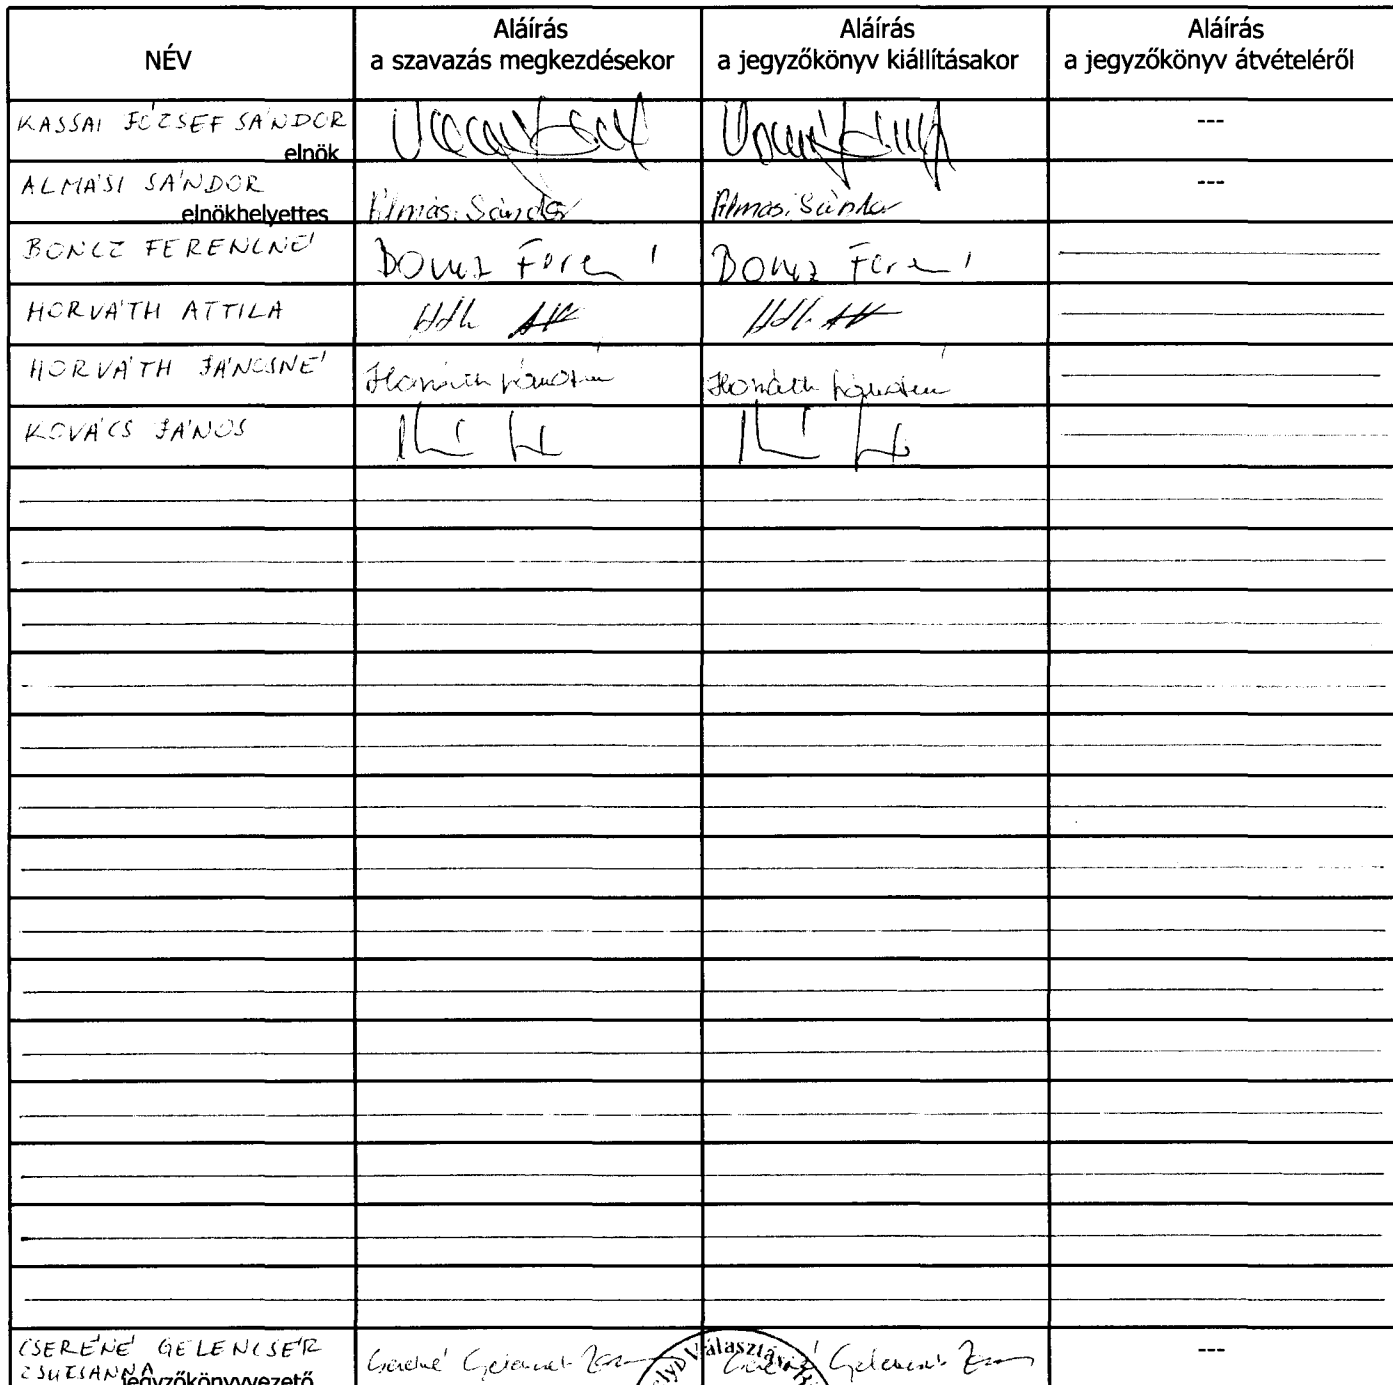 NÉV
Aláírás
a szavazás megkezdésekor
Aláírás
a jegyzőkönyv kiállításakor
Aláírás
a jegyzőkönyv átvételéről
KASSAI JÓZSEF SÁNDOR
elnök
---
ALMÁSI SÁNDOR
elnökhelyettes
Almási Sándor
Almási Sándor
---
BONCZ FERENCNÉ
Boncz Feren
Boncz Feren
HORVÁTH ATTILA
HORVÁTH JÁNOSNÉ
Horváth Jánosné
Horváth Jánosné
KOVÁCS JÁNOS
CSERÉNÉ GELENCSÉR
ZSUZSANNA
jegyzőkönyvvezető
Cseréné Gelencsér
Cseréné Gelencsér
---
Választási